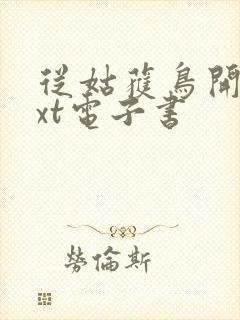 從姑蘇鳥開
xt電子書
勞倫斯